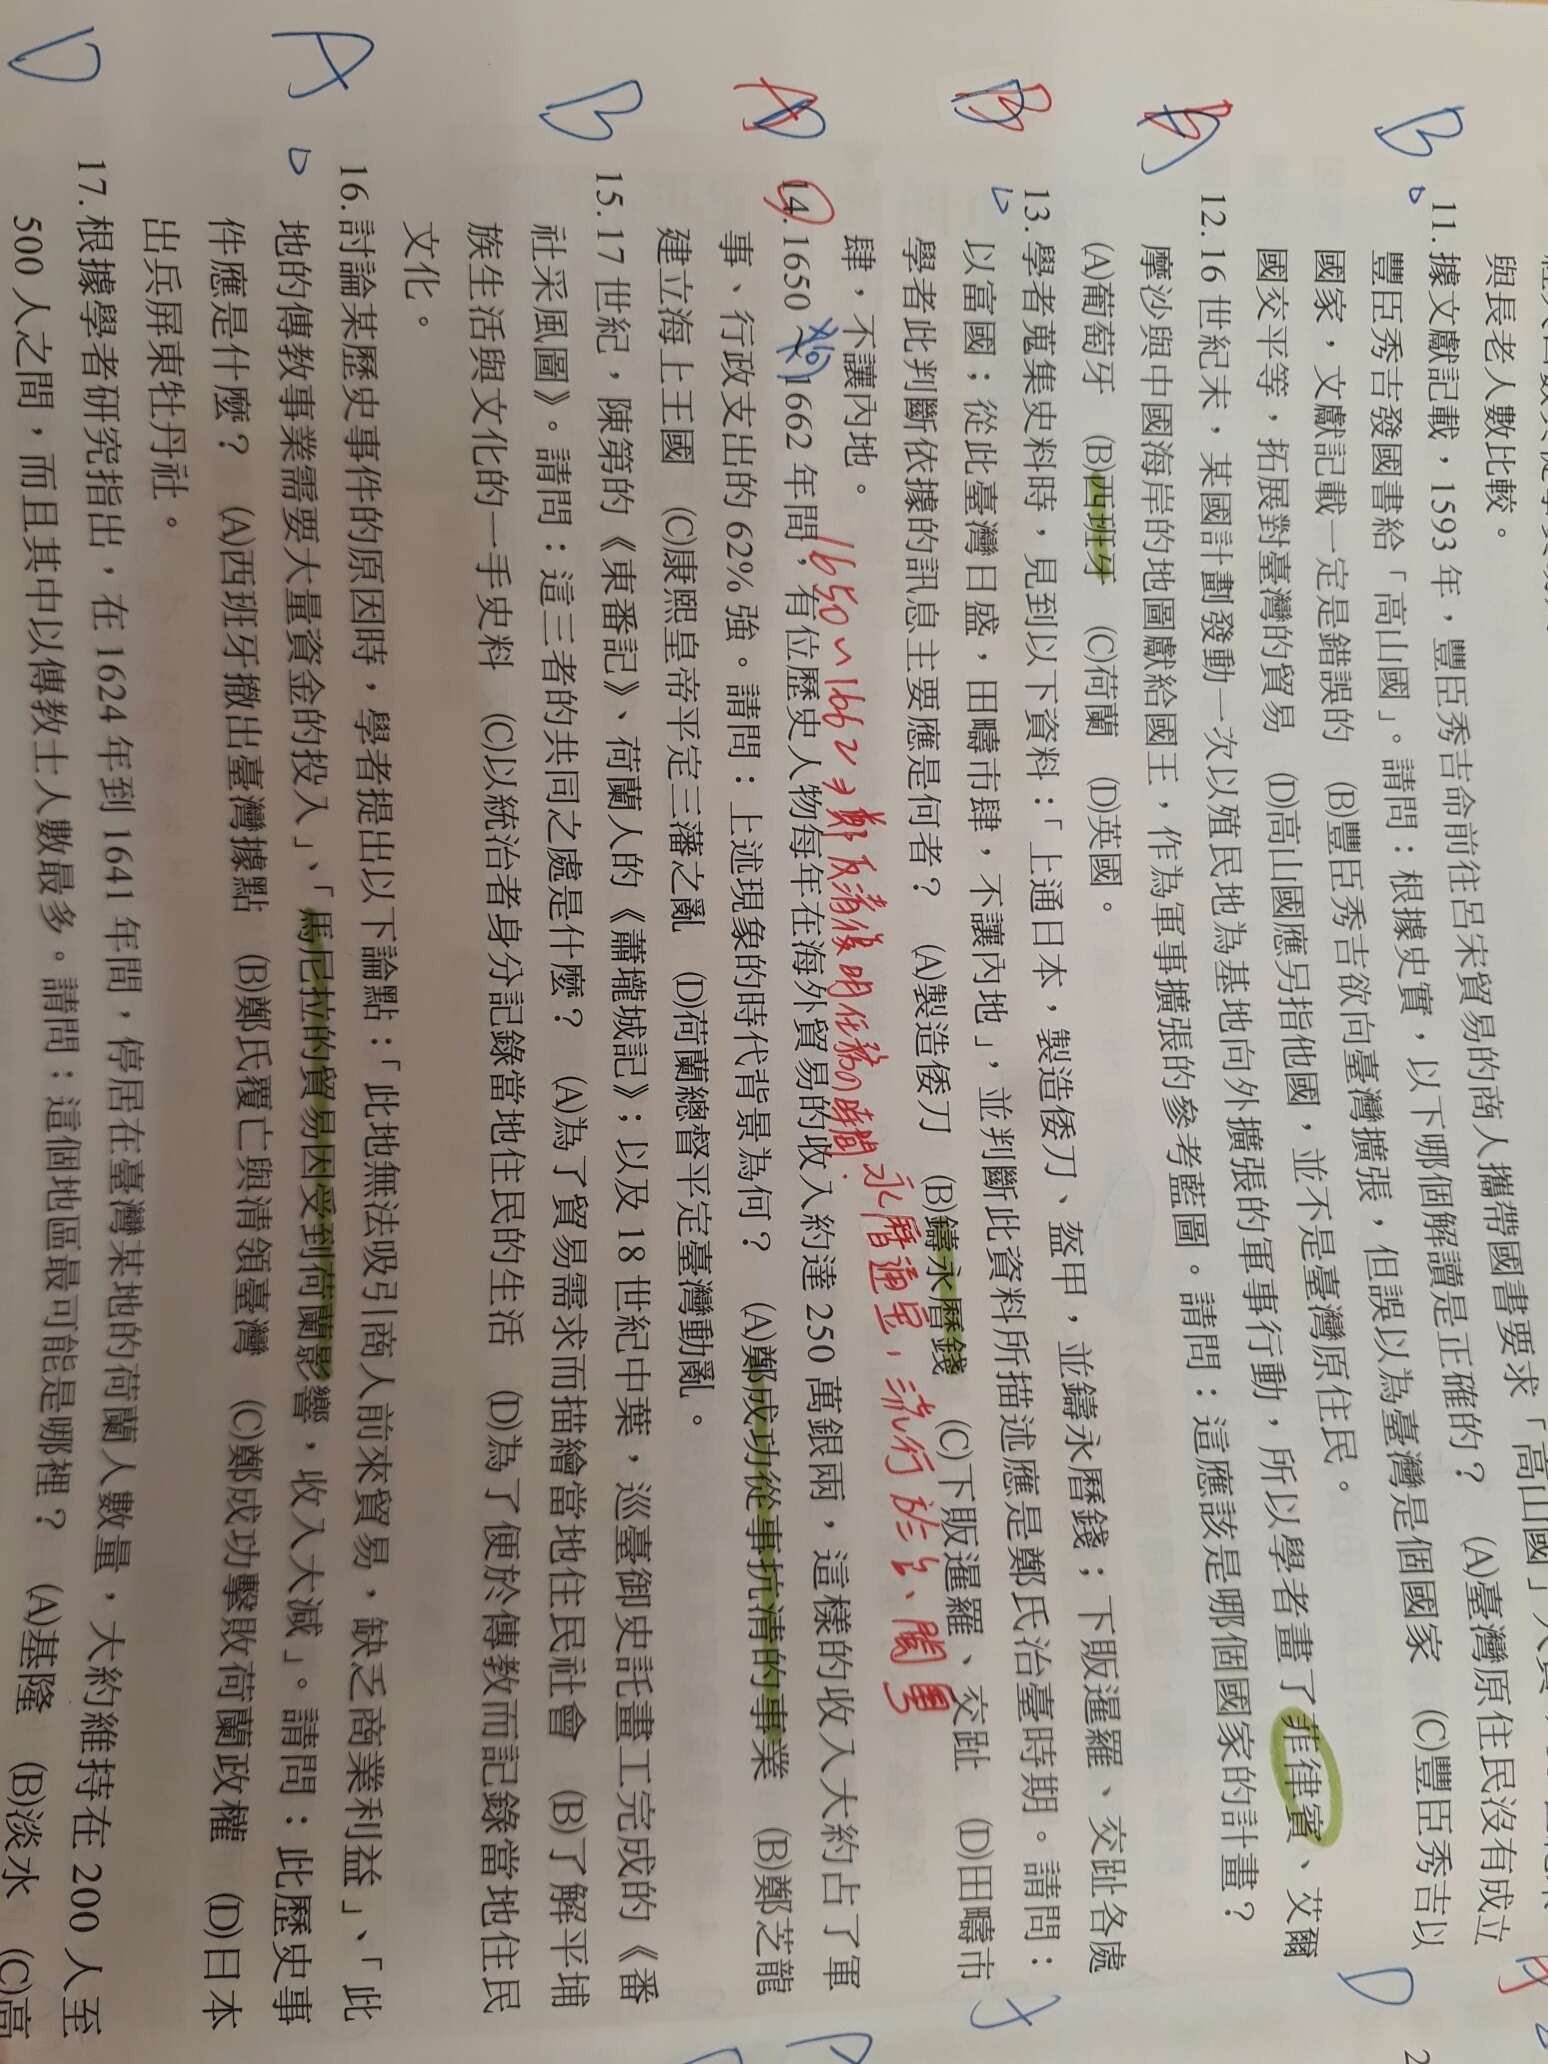 與長老人數比較。
B
11.據文獻記載，1593 年，豐臣秀吉命前往呂宋貿易的商人攜帶國書要求「高山國」
豐臣秀吉發國書給「高山國」。請問：根據史實，以下哪個解讀是正確的？ (A)臺灣原住民沒有成立
國家，文獻記載一定是錯誤的 (B)豐臣秀吉欲向臺灣擴張，但誤以為臺灣是個國家 (C)豐臣秀吉以
國交平等，拓展對臺灣的貿易 (D)高山國應另指他國，並不是臺灣原住民。
B
12.16 世紀末，某國計劃發動一次以殖民地為基地向外擴張的軍事行動，所以學者畫了菲律賓、艾爾
摩沙與中國海岸的地圖獻給國王，作為軍事擴張的參考藍圖。請問：這應該是哪個國家的計畫？
(A)葡萄牙 (B)西班牙 (C)荷蘭 (D)英國。
B
13.學者蒐集史料時，見到以下資料：「上通日本，製造倭刀、盔甲，並鑄永曆錢；下販暹羅、交趾各處
以富國；從此臺灣日盛，田疇市肆，不讓內地」，並判斷此資料所描述應是鄭氏治臺時期。請問：
學者此判斷依據的訊息主要應是何者？ (A)製造倭刀 (B)鑄永曆錢 (C)下販暹羅、交趾 (D)田疇市
肆，不讓內地。
永曆通寶，流行
1650~1662→鄭反清復明任務の時間.
A
D
14.1650~1662 年間，有位歷史人物每年在海外貿易的收入約達 250 萬銀兩，這樣的收入大約占了軍
事、行政支出的 62% 強。請問：上述現象的時代背景為何？ (A)鄭成功從事抗清的事業 (B)鄭芝龍
建立海上王國 (C)康熙皇帝平定三藩之亂 (D)荷蘭總督平定臺灣動亂。
B
15.17 世紀，陳第的《東番記》、荷蘭人的《蕭壠城記》；以及 18 世紀中葉，巡臺御史託畫工完成的《番
社采風圖》。請問：這三者的共同之處是什麼？ (A)為了貿易需求而描繪當地住民社會 (B)了解平埔
族生活與文化的一手史料 (C)以統治者身分記錄當地住民的生活 (D)為了便於傳教而記錄當地住民
文化。
A
16.討論某歷史事件的原因時，學者提出以下論點：「此地無法吸引商人前來貿易，缺乏商業利益」、「此
地的傳教事業需要大量資金的投入」、「馬尼拉的貿易因受到荷蘭影響，收入大減」。請問：此歷史事
件應是什麼？ (A)西班牙撤出臺灣據點 (B)鄭氏覆亡與清領臺灣 (C)鄭成功擊敗荷蘭政權 (D)日本
出兵屏東牡丹社。
D
17.根據學者研究指出，在 1624 年到 1641 年間，停居在臺灣某地的荷蘭人數量，大約維持在 200 人至
500 人之間，而且其中以傳教士人數最多。請問：這個地區最可能是哪裡？ (A)基隆 (B)淡水 (C)高
D